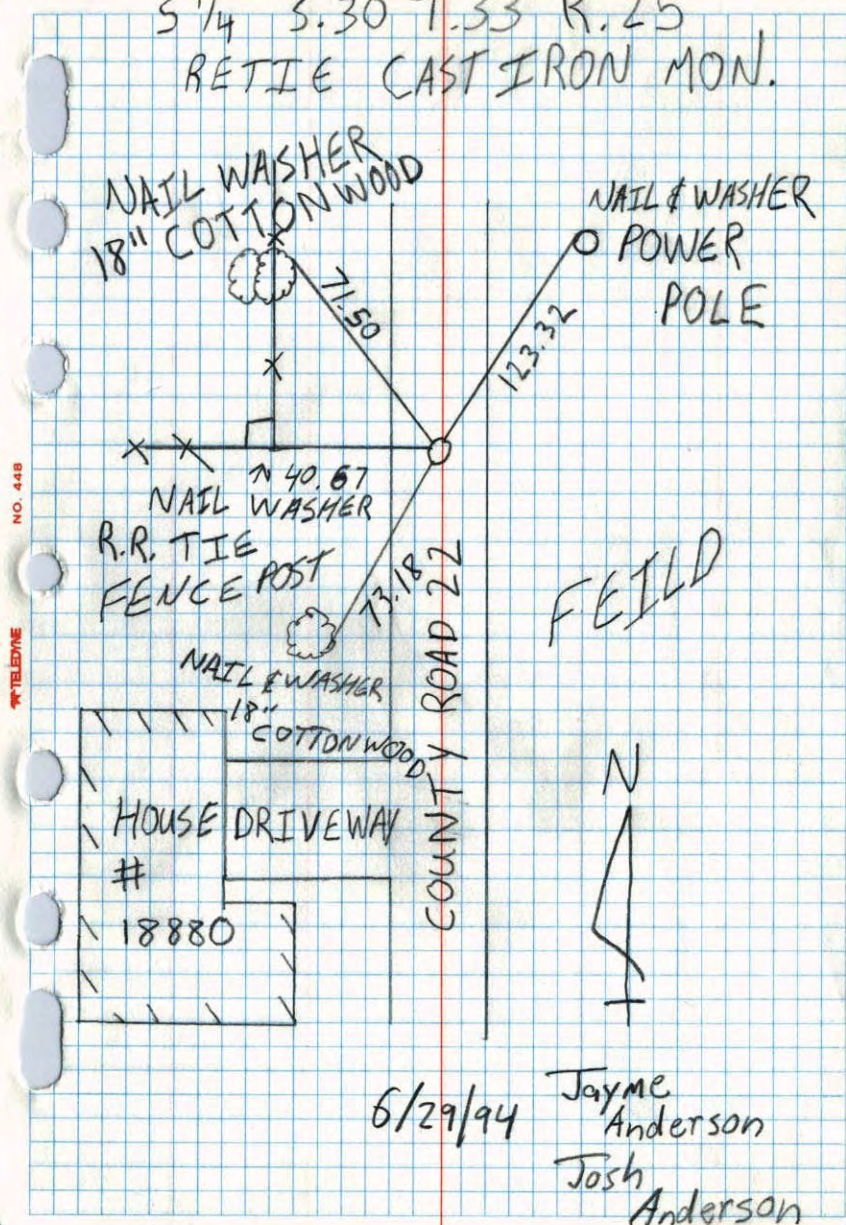 S 1/4 S.30 T.33 R.25
RETIE CAST IRON MON.
NAIL WASHER
18" COTTONWOOD
NAIL & WASHER
POWER
POLE
71.50
123.32
~ 40.67
NAIL WASHER
R.R. TIE
FENCE POST
73.18
FEILD
NAIL & WASHER
18"
COTTONWOOD
COUNTY ROAD 22
N
HOUSE
#
18880
DRIVEWAY
6/29/94
Jayme
Anderson
Josh
Anderson
NO. 448
TELEDYNE